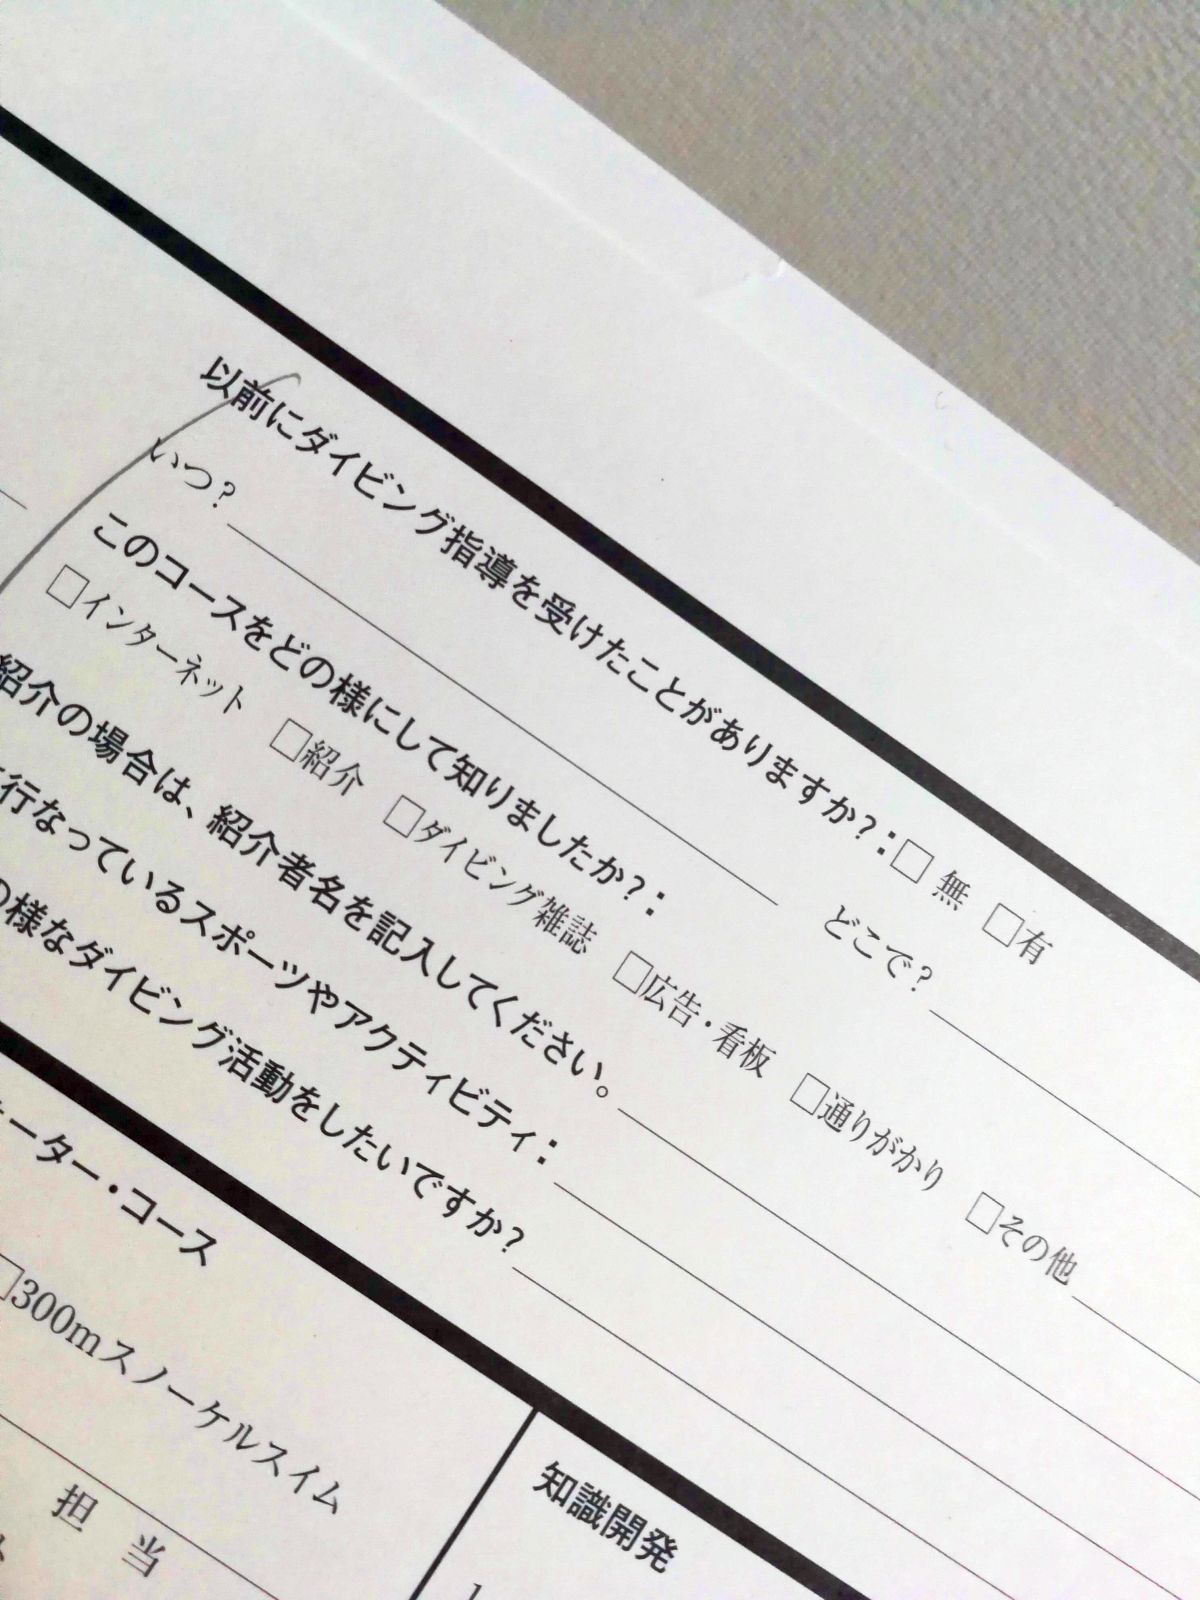 以前にダイビング指導を受けたことがありますか?:□ 無 □有
いつ? どこで?
このコースをどの様にして知りましたか?:
□インターネット □紹介 □ダイビング雑誌 □広告・看板 □通りがかり □その他
紹介の場合は、紹介者名を記入してください。
行なっているスポーツやアクティビティ:
の様なダイビング活動をしたいですか?
ーター・コース
□300mスノーケルスイム
担 当
知識開発
1